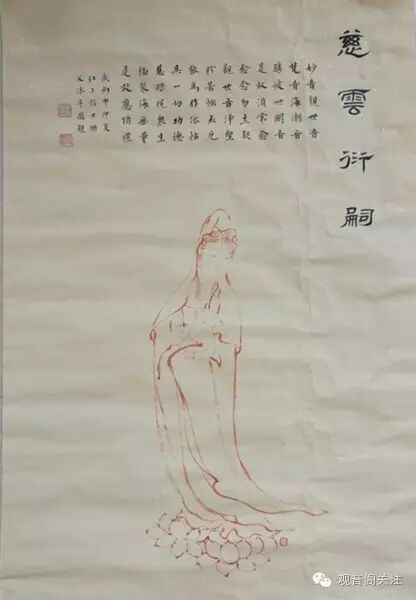 慈雲衍嗣
妙音觀世音
梵音海潮音
勝彼世間音
是故須常念
念念勿生疑
觀世音淨聖
於苦惱死厄
能為作依怙
具一切功德
慈眼視眾生
福聚海無量
是故應頂禮
歲丙申仲夏
江上信士
沐手
观音阁关注